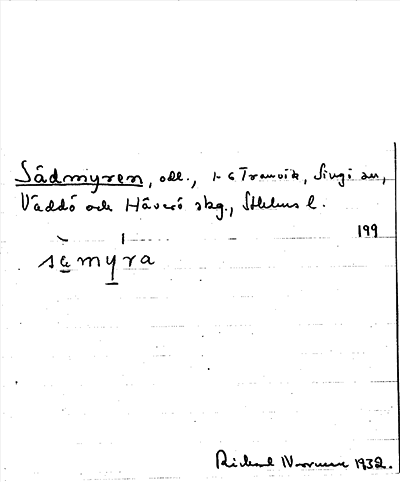 Sådmyren, odl., 1-6 Tranvik, Singö sn,
Väddö och Häverö skg., Sthlms l.
199
såmyra
Rickard 1932.